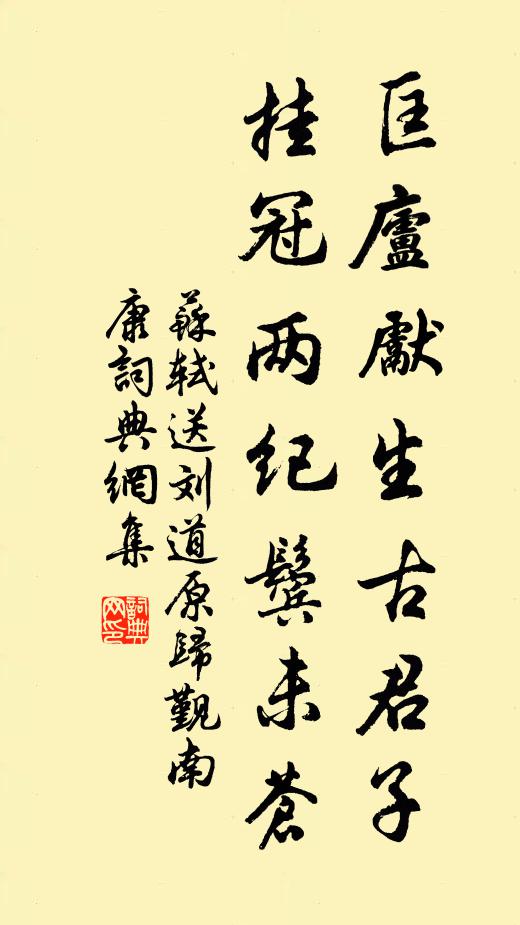 匡廬獻生古君子
挂冠两纪鬓未蒼
蘇轼送刘道原歸覲南
康詞典網集
詞典网印